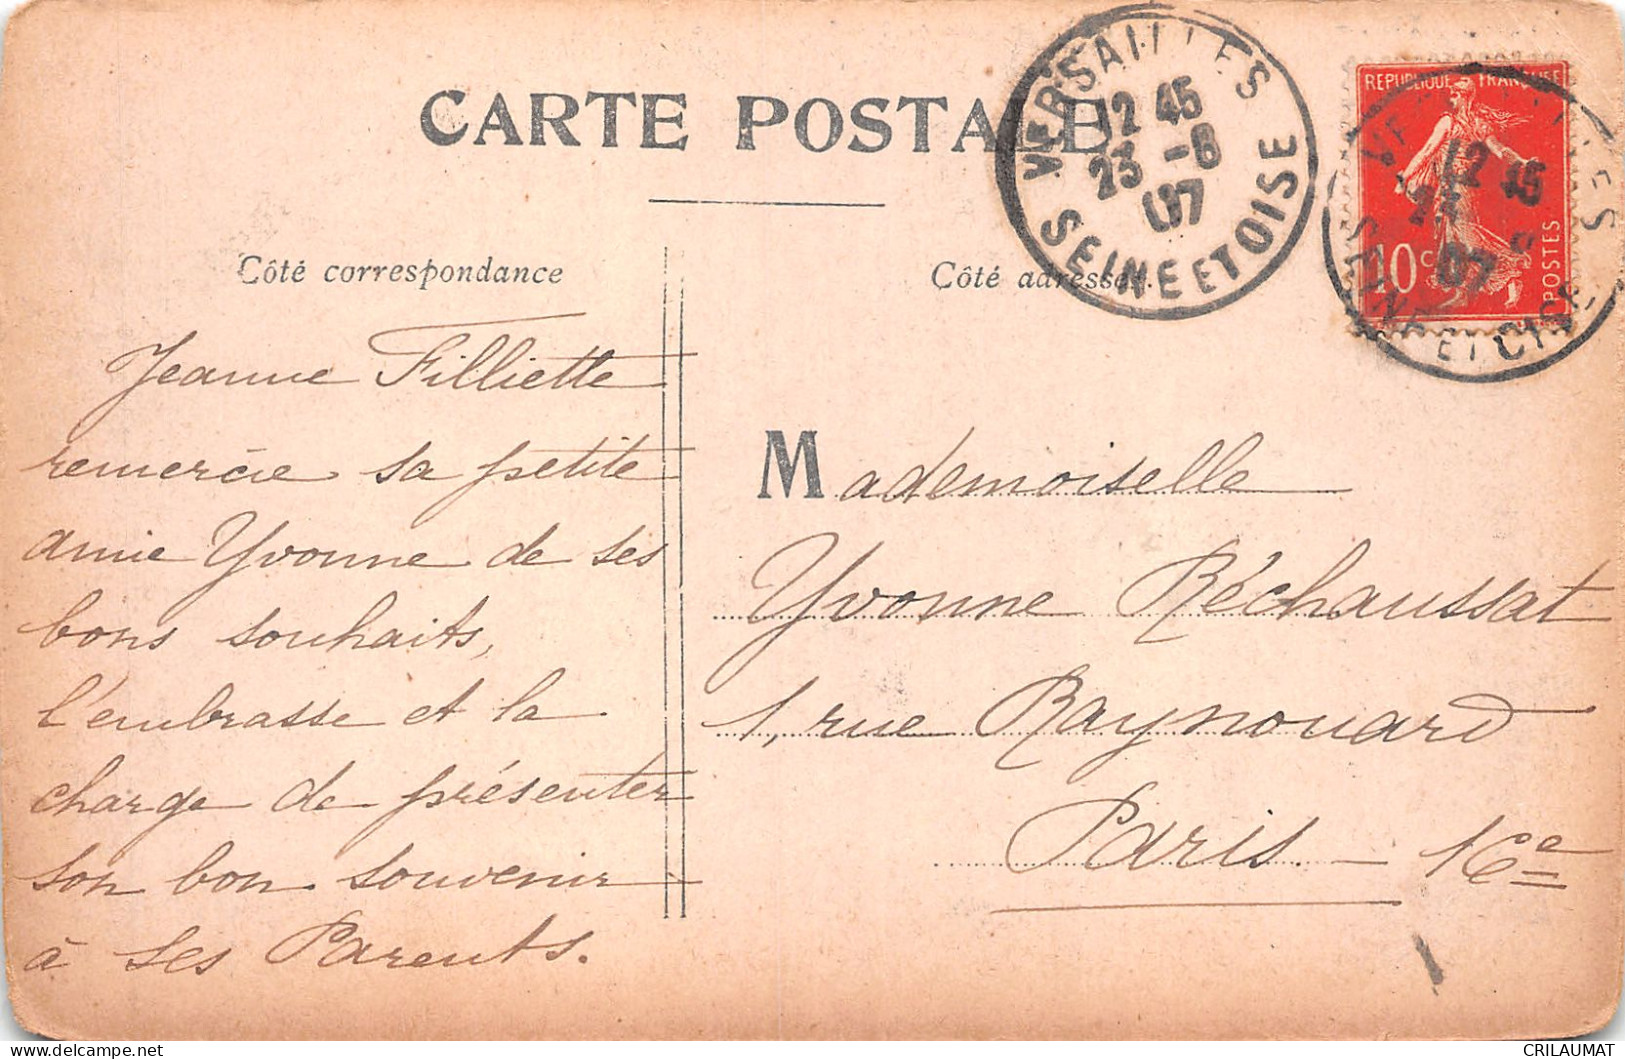 CARTE POSTALE
Côté correspondance
Côté adresse.
VERSAILLES
12 45
23 -6
07
SEINE ET OISE
REPUBLIQUE FRANÇAISE
10 c
POSTES
12 45
07
SEINE ET OISE
Jeanne Filliette
remercie sa petite
amie Yvonne de ses
bons souhaits,
l'embrasse et la
charge de présenter
son bon souvenir
à ses Parents.
Mademoiselle
Yvonne Réchaussat
1, rue Raynouard
Paris - 16e
CRILAUMAT
delcampe.net